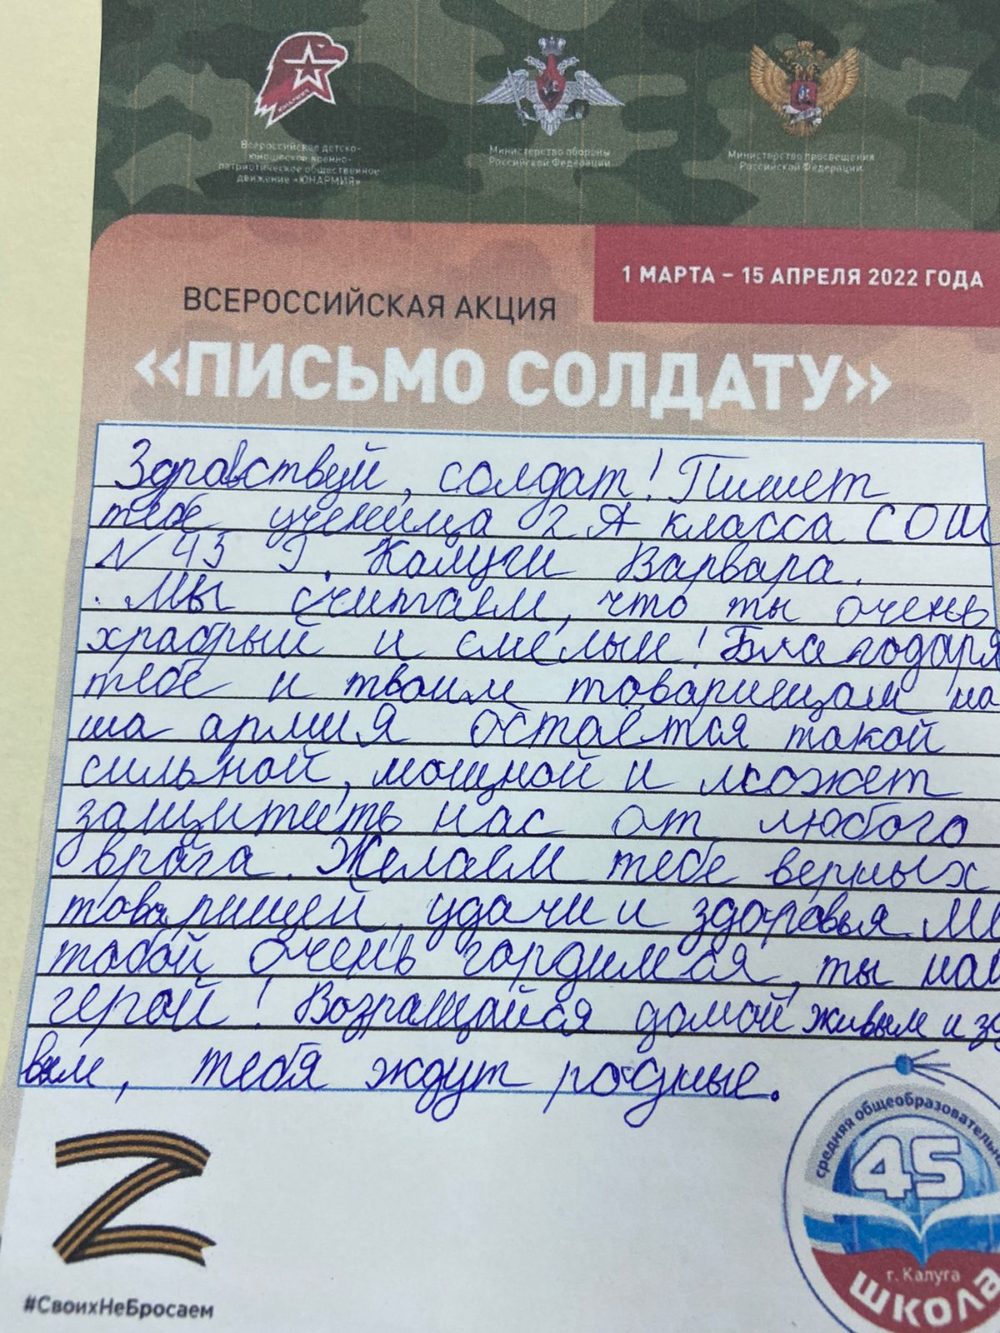 Всероссийское детско-
юношеское военно-
патриотическое общественное
движение «ЮНАРМИЯ»
Министерство обороны
Российской Федерации
Министерство просвещения
Российской Федерации
1 МАРТА – 15 АПРЕЛЯ 2022 ГОДА
ВСЕРОССИЙСКАЯ АКЦИЯ
«ПИСЬМО СОЛДАТУ»
Здравствуй, солдат! Пишет
тебе ученица 2 А класса СОШ
N 45 г. Калуги Варвара.
Мы считаем, что ты очень
храбрый и смелый! Благодаря
тебе и твоим товарищам на
ша армия остаётся такой
сильной, мощной и может
защитить нас от любого
врага. Желаем тебе верных
товарищей, удачи и здоровья. Мы
тобой очень гордимся, ты наш
герой! Возращайся домой живым и здо
вым, тебя ждут родные.
средняя общеобразовательная
45
г. Калуга
школа
#СвоихНеБросаем